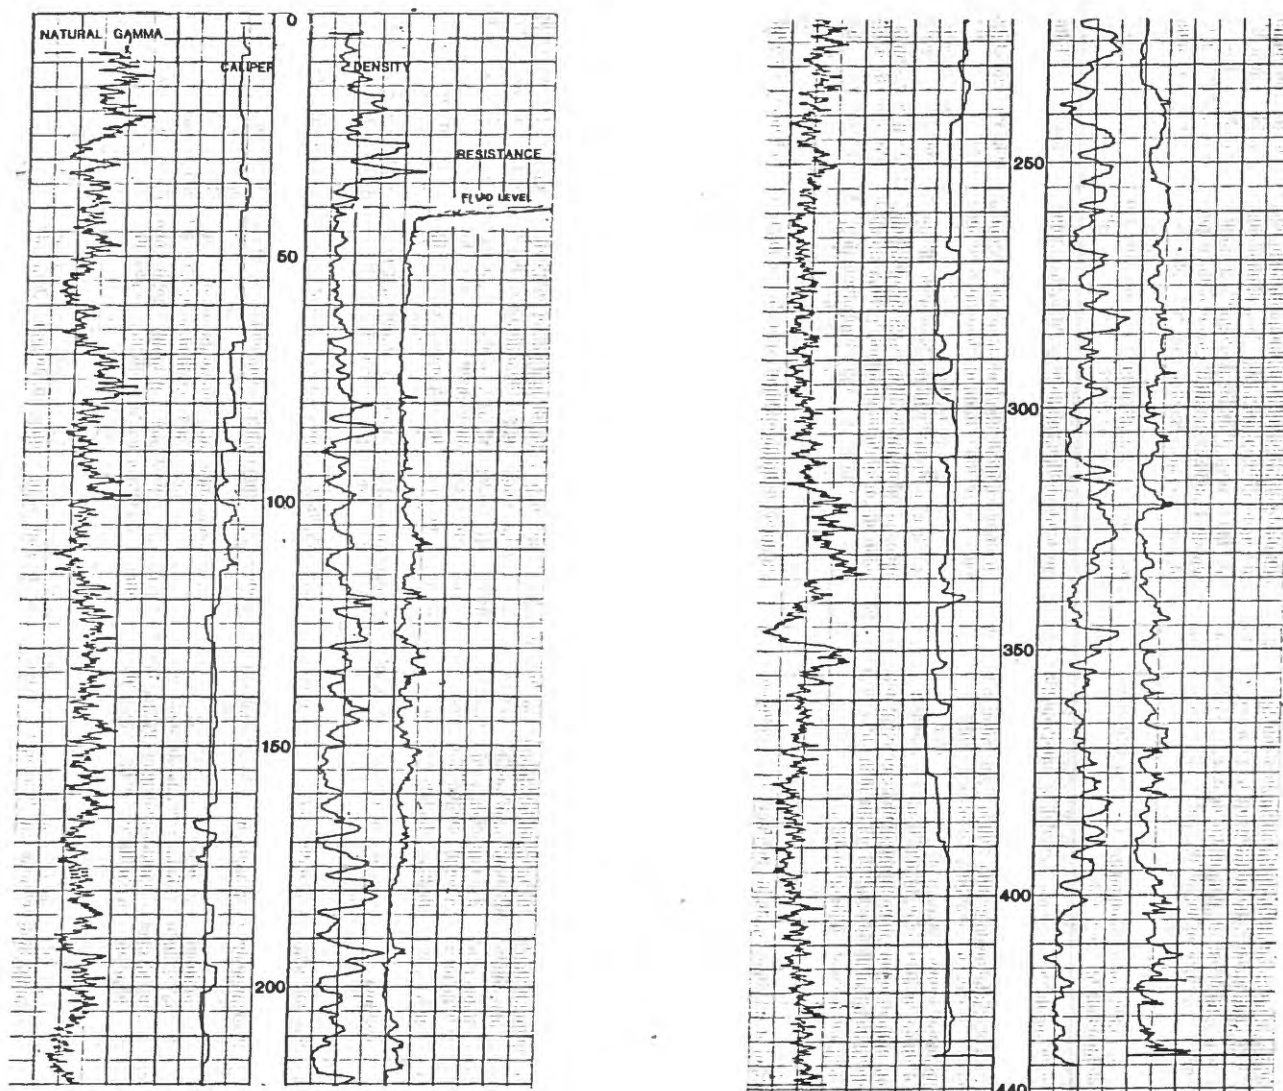 0
NATURAL GAMMA
CALIPER
DENSITY
RESISTANCE
FLUID LEVEL
50
100
150
200
250
300
350
400
440